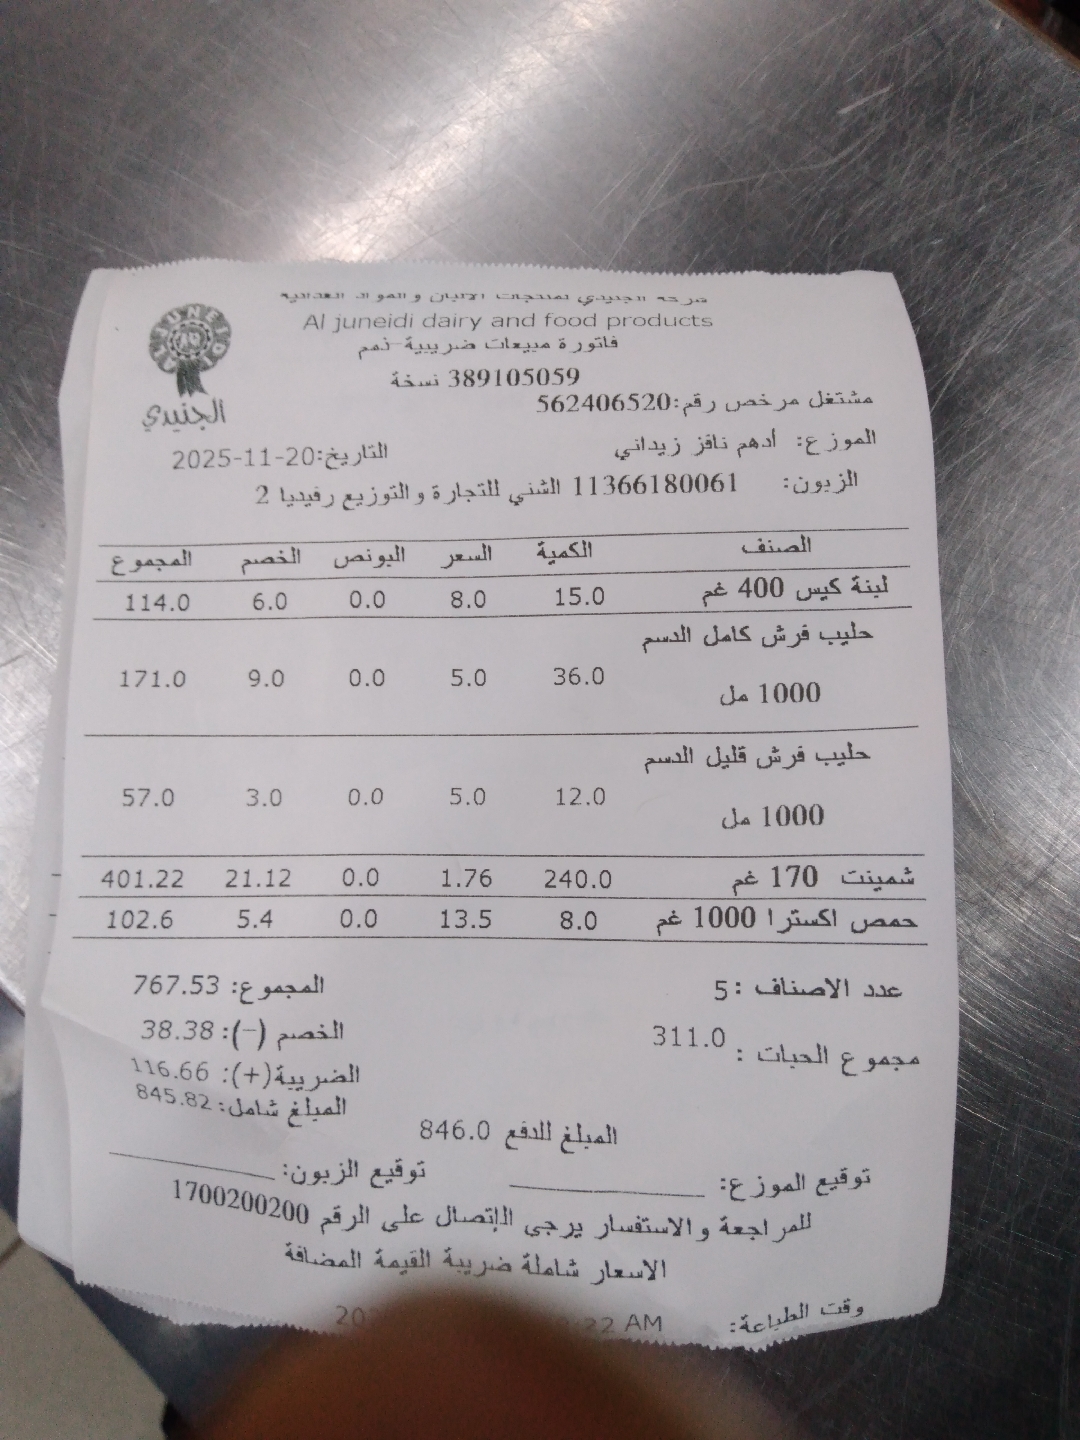 شركة الجنيدي لمنتجات الألبان والمواد الغذائية
Al juneidi dairy and food products
AL JUNEIDI
الجنيدي
فاتورة مبيعات ضريبية-ذمم
389105059 نسخة
مشتغل مرخص رقم:562406520
الموزع: أدهم نافز زيداني التاريخ:20-11-2025
الزبون: 11366180061 الشني للتجارة والتوزيع رفيديا 2
الصنف الكمية السعر البونص الخصم المجموع
لبنة كيس 400 غم 15.0 8.0 0.0 6.0 114.0
حليب فرش كامل الدسم
1000 مل 36.0 5.0 0.0 9.0 171.0
حليب فرش قليل الدسم
1000 مل 12.0 5.0 0.0 3.0 57.0
شمينت 170 غم 240.0 1.76 0.0 21.12 401.22
حمص اكسترا 1000 غم 8.0 13.5 0.0 5.4 102.6
عدد الاصناف :5 المجموع: 767.53
مجموع الحبات : 311.0 الخصم (-): 38.38
الضريبة(+): 116.66
المبلغ شامل: 845.82
المبلغ للدفع 846.0
توقيع الموزع: توقيع الزبون:
للمراجعة والاستفسار يرجي الإتصال على الرقم 1700200200
الاسعار شاملة ضريبة القيمة المضافة
وقت الطباعة: 22 AM